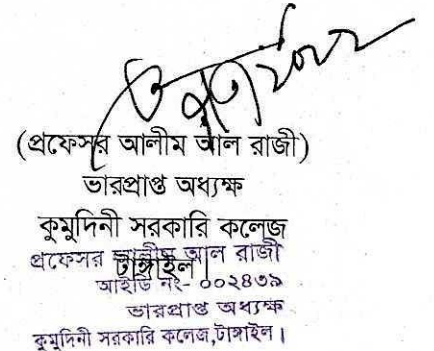 (প্রফেসর আলীম আল রাজী)
ভারপ্রাপ্ত অধ্যক্ষ
কুমুদিনী সরকারি কলেজ
টাঙ্গাইল।
প্রফেসর আলীম আল রাজী
আইডি নং- ০০২৪৩৯
ভারপ্রাপ্ত অধ্যক্ষ
কুমুদিনী সরকারি কলেজ,টাঙ্গাইল।